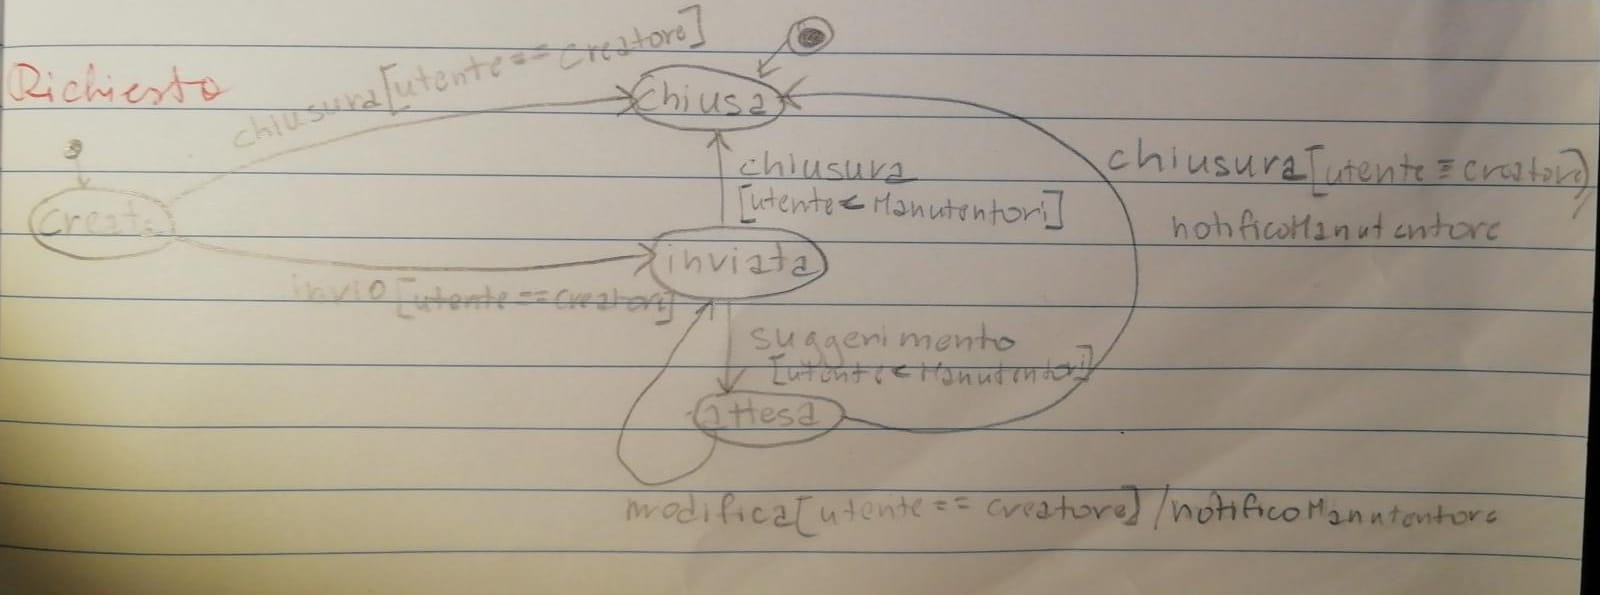 Richiesta
chiusura[utente==Creatore]
chiusa
creata
chiusura
[utente < Manutentori]
chiusura[utente = creatore]/
notificoManutentore
inviata
invio[utente==creatore]
suggerimento
[utente < Manutentori]
attesa
modifica[utente == creatore]/notificoManutentore